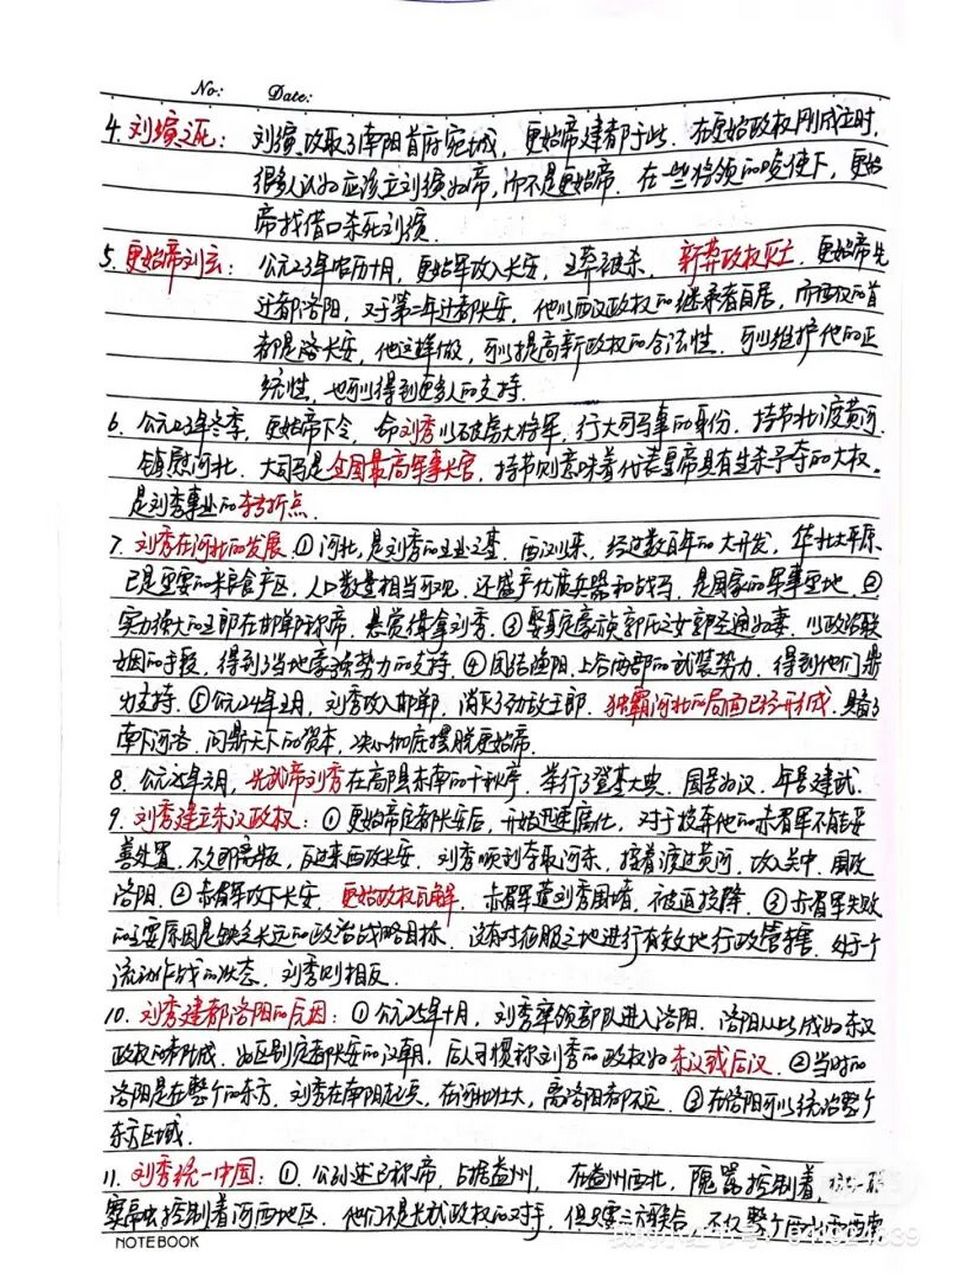 No: Date:
4. 刘演之死: 刘演攻取了南阳首府宛城, 更始帝建都于此. 在更始政权刚成立时,
很多人认为应该立刘演为帝, 而不是更始帝. 在一些将领的唆使下, 更始
帝找借口杀死刘演.
5. 更始帝刘玄: 公元23年农历十月, 更始军攻入长安, 王莽被杀, 新莽政权灭亡. 更始帝先
迁都洛阳, 又于第二年迁都长安. 他以西汉政权的继承者自居, 而西汉的首
都是洛长安, 他这样做, 可以提高新政权的合法性. 可以维护他的正
统性, 也可以得到更多人的支持.
6. 公元23年冬季, 更始帝下令, 命刘秀以破虏大将军, 行大司马事的身份, 持节北渡黄河,
镇慰河北. 大司马是全国最高军事长官, 持节则意味着代表皇帝具有生杀予夺的大权.
是刘秀事业的转折点.
7. 刘秀在河北的发展. ①河北, 是刘秀的王业之基. 西汉以来, 经过数百年的大开发, 华北大平原
已是重要的粮食产区, 人口数量相当可观, 还盛产优质兵器和战马, 是国家的军事重地. ②
实力强大的王郎在邯郸称帝, 悬赏缉拿刘秀. ③娶真定豪族郭氏之女郭圣通为妻. 以政治联
姻的手段, 得到了当地豪强势力的支持. ④团结渔阳、上谷两郡的武装势力, 得到他们鼎
力支持. ⑤公元24年五月, 刘秀攻入邯郸, 消灭了劲敌王郎. 独霸河北的局面已经形成, 具备了
南下河洛、问鼎天下的资本, 决心彻底摆脱更始帝.
8. 公元25年六月, 光武帝刘秀在高阳县东南的千秋亭, 举行了登基大典, 国号为汉, 年号建武.
9. 刘秀建立东汉政权: ①更始帝定都长安后, 开始迅速腐化, 对于投奔他的赤眉军不能妥
善处置. 不久即离叛, 反过来西攻长安. 刘秀顺利夺取河东, 接着渡过黄河, 攻入关中, 围攻
洛阳. ②赤眉军攻下长安. 更始政权瓦解. 赤眉军遭刘秀围堵, 被迫投降. ③赤眉军失败
的主要原因是缺乏长远的政治战略目标, 没有对征服之地进行有效地行政管辖, 处于个
流动作战的状态. 刘秀则相反.
10. 刘秀建都洛阳的原因: ①公元25年十月, 刘秀率领部队进入洛阳. 洛阳从此成为东汉
政权的都城. 为区别定都长安的汉朝, 后人习惯称刘秀的政权为东汉或后汉. ②当时的
洛阳是在整个的东方, 刘秀在南阳起兵, 在河北壮大, 离洛阳都不远. ③在洛阳可以统治整个
东方区域.
11. 刘秀统一中国: ①. 公孙述已称帝, 占据益州, 在益州西北, 隗嚣控制着
窦融控制着河西地区. 他们不是长武政权的对手, 但只要三方联合, 不仅整个西北和西南
NOTEBOOK